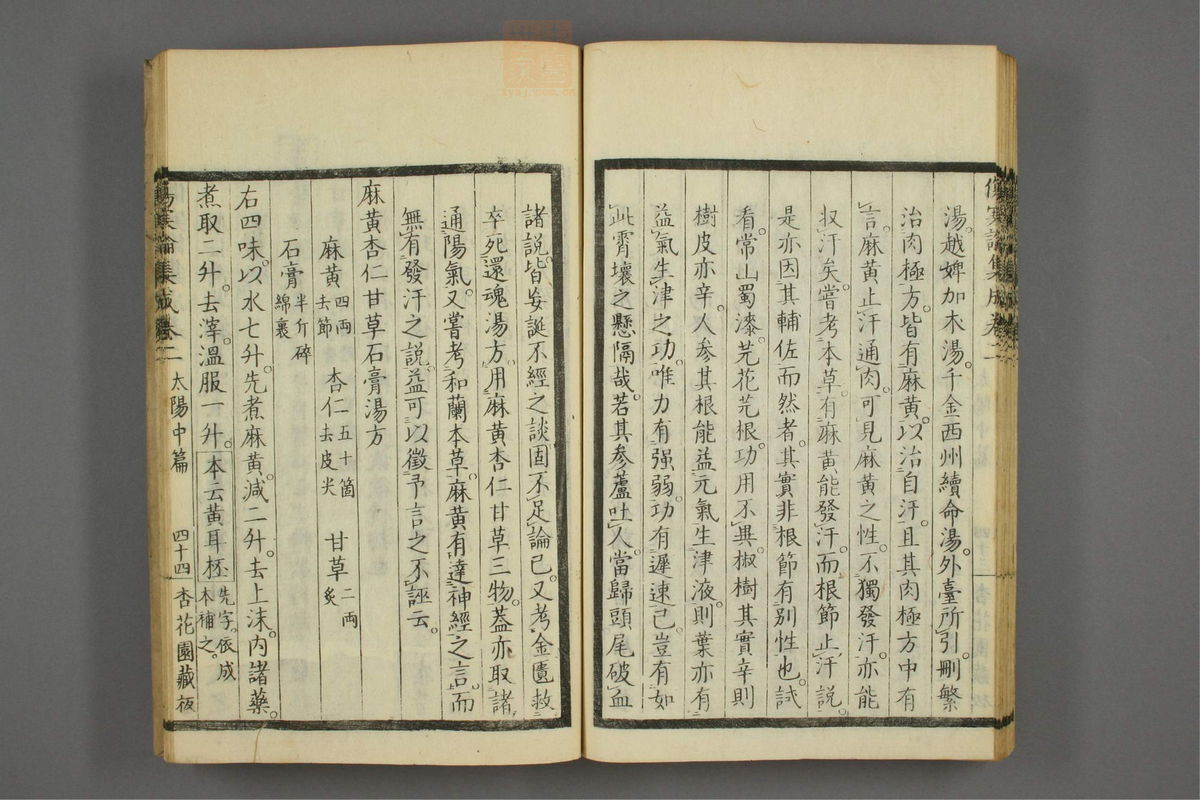 湯。越婢加朮湯。千金西州續命湯。外臺所引。刪繁
治肉極方。皆有麻黄。以治自汗。且其肉極方中有
言。麻黄止汗通肉。可見麻黄之性。不獨發汗。亦能
収汗矣。嘗考本草。有麻黄能發汗。而根節止汗説。
是亦因其輔佐而然者。其實非根節有別性也。試
看。常山蜀漆。芫花芫根。功用不異。椒樹其實辛。則
樹皮亦辛。人參其根能益元氣生津液。則葉亦有
益氣生津之功。唯力有强弱。功有遲速已。豈有如
此霄壤之懸隔哉。若其參蘆吐人。當歸頭尾破血
諸説。皆妄誕不經之談。固不足論已。又考。金匱救
卒死。還魂湯方。用麻黄杏仁甘草三物。蓋亦取諸
通陽氣。又嘗考和蘭本草。麻黄有達神經之言。而
無有發汗之説。益可以徵予言之不誣云。
麻黄杏仁甘草石膏湯方
麻黄四兩去節 杏仁五十箇去皮尖 甘草二兩炙
石膏半斤碎綿裹
右四味。以水七升。先煮麻黄。減二升。去上沫。内諸藥。
煮取二升。去滓。溫服一升。本云黄耳柸 先字。依成本補之。
傷寒論集成 卷二 太陽中篇 四十四 杏花園藏板